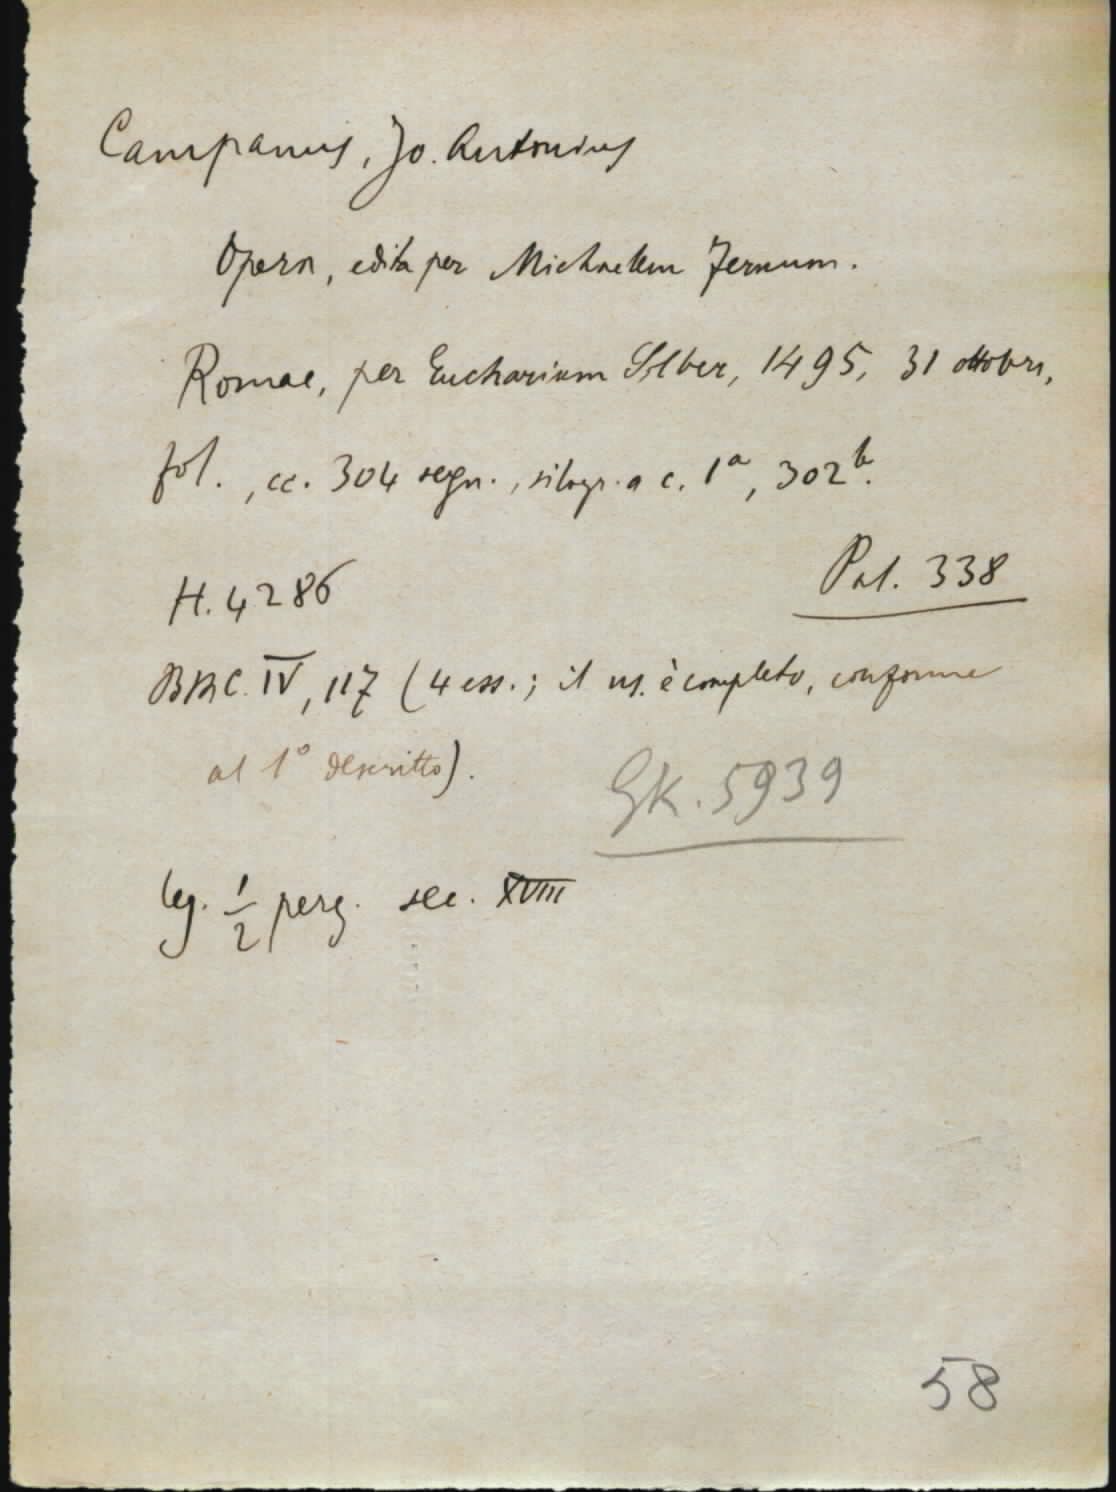 Campanus, Jo. Antonius
Opera, edita per Michaelem Fernum.
Romae, per Eucharium Silber, 1495, 31 ottobre,
fol., cc. 304 segn., silogr. a c. 1ª, 302ᵇ.
Pal. 338
H. 4286
BMC. IV, 117 (4 ess.; il ns. è completo, conforme
al 1° descritto).
GK. 5939
leg. 1/2 perg. sec. XVIII
58